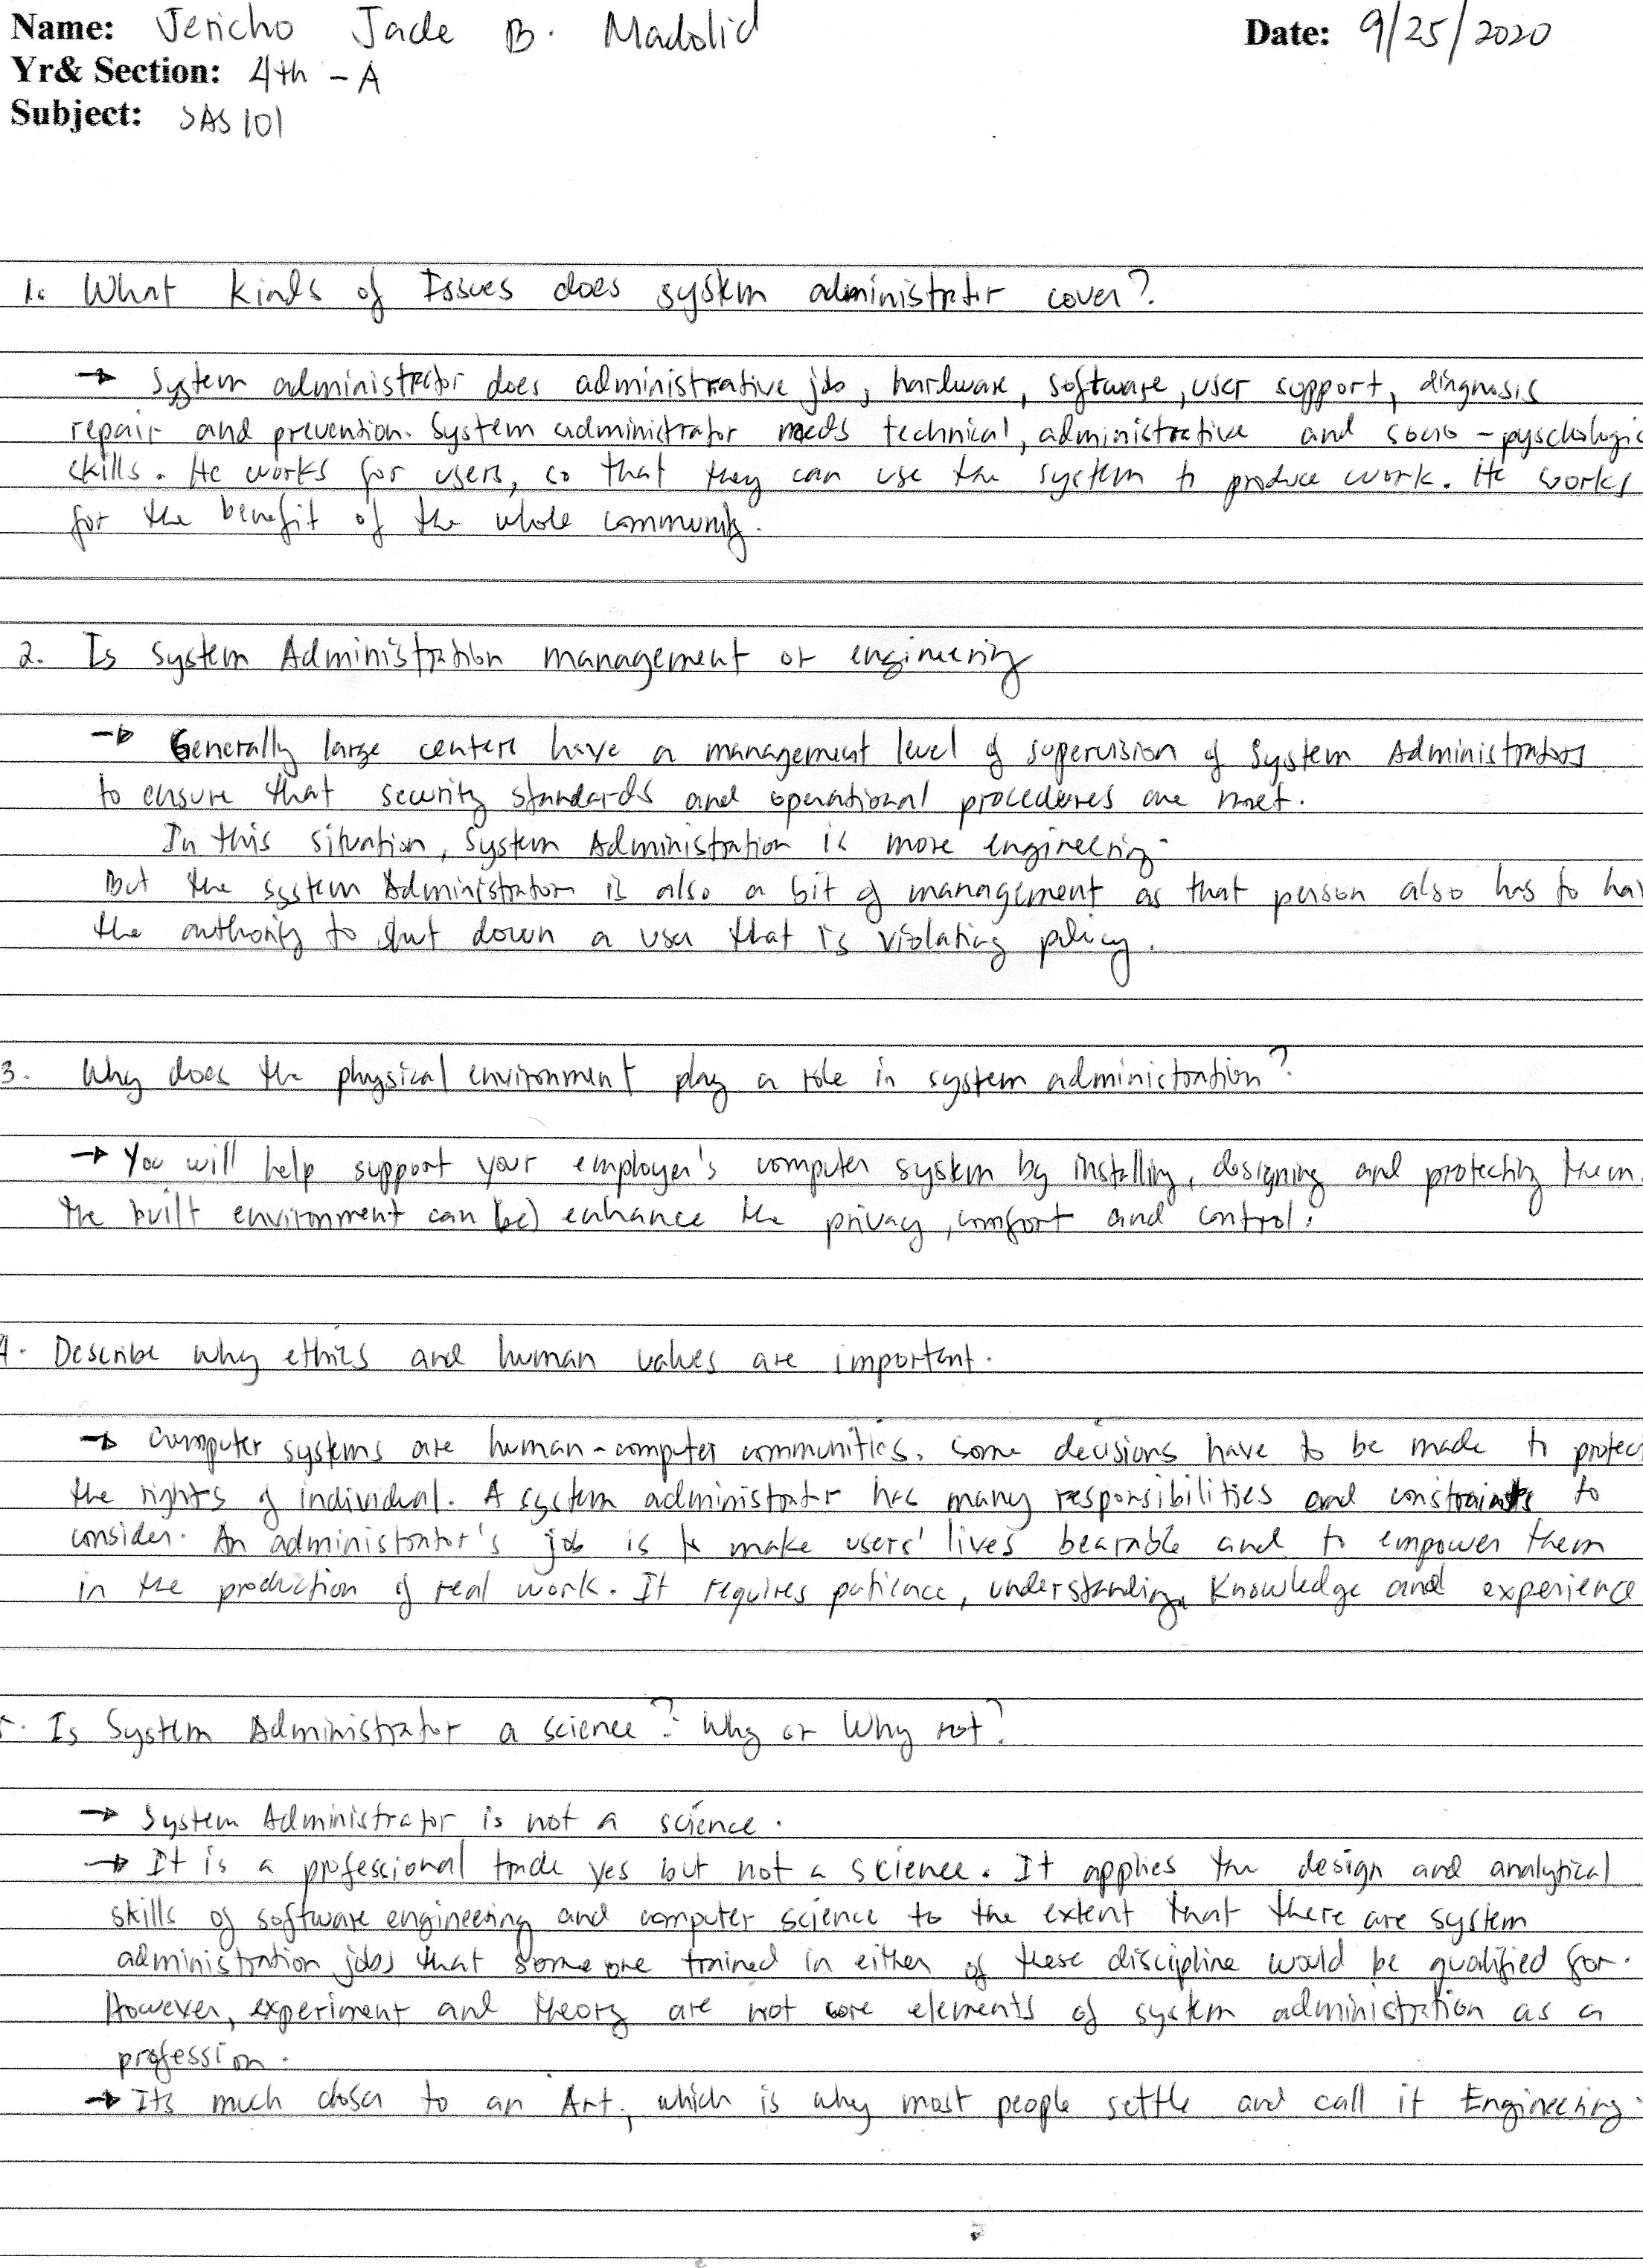 Name: Jericho Jade B. Madolid Date: 9/25/2020
Yr& Section: 4th - A
Subject: SAS 101
1. What kinds of Issues does system administrator cover?
→ System administrator does administrative job, hardware, software, user support, diagnosis
repair and prevention. System administrator needs technical, administrative and socio-pyschologic
skills. He works for users, so that they can use the system to produce work. He works
for the benefit of the whole community.
2. Is System Administration management or engineering
→ Generally large centers have a management level of supervision of System Administrators
to ensure that security standards and operational procedures are met.
In this situation, System Administration is more engineering.
But the system Administrator is also a bit of management as that person also has to hav
the authority to shut down a user that is violating policy.
3. Why does the physical environment play a role in system administration?
→ You will help support your employer's computer system by installing, designing and protecting them.
the built environment can (be) enhance the privacy, comfort and control.
4. Describe why ethics and human values are important.
→ Computer systems are human-computer communities. Some decisions have to be made to protect
the rights of individual. A system administrator has many responsibilities and constraints to
consider. An administrator's job is to make users' lives bearable and to empower them
in the production of real work. It requires patience, understanding, knowledge and experience
5. Is System Administrator a science? Why or Why not?
→ System Administrator is not a science.
→ It is a professional trade yes but not a science. It applies the design and analytical
skills of software engineering and computer science to the extent that there are system
administration jobs that someone trained in either of these discipline would be qualified for.
However, experiment and theory are not core elements of system administration as a
profession.
→ Its much closer to an Art, which is why most people settle and call it Engineering.